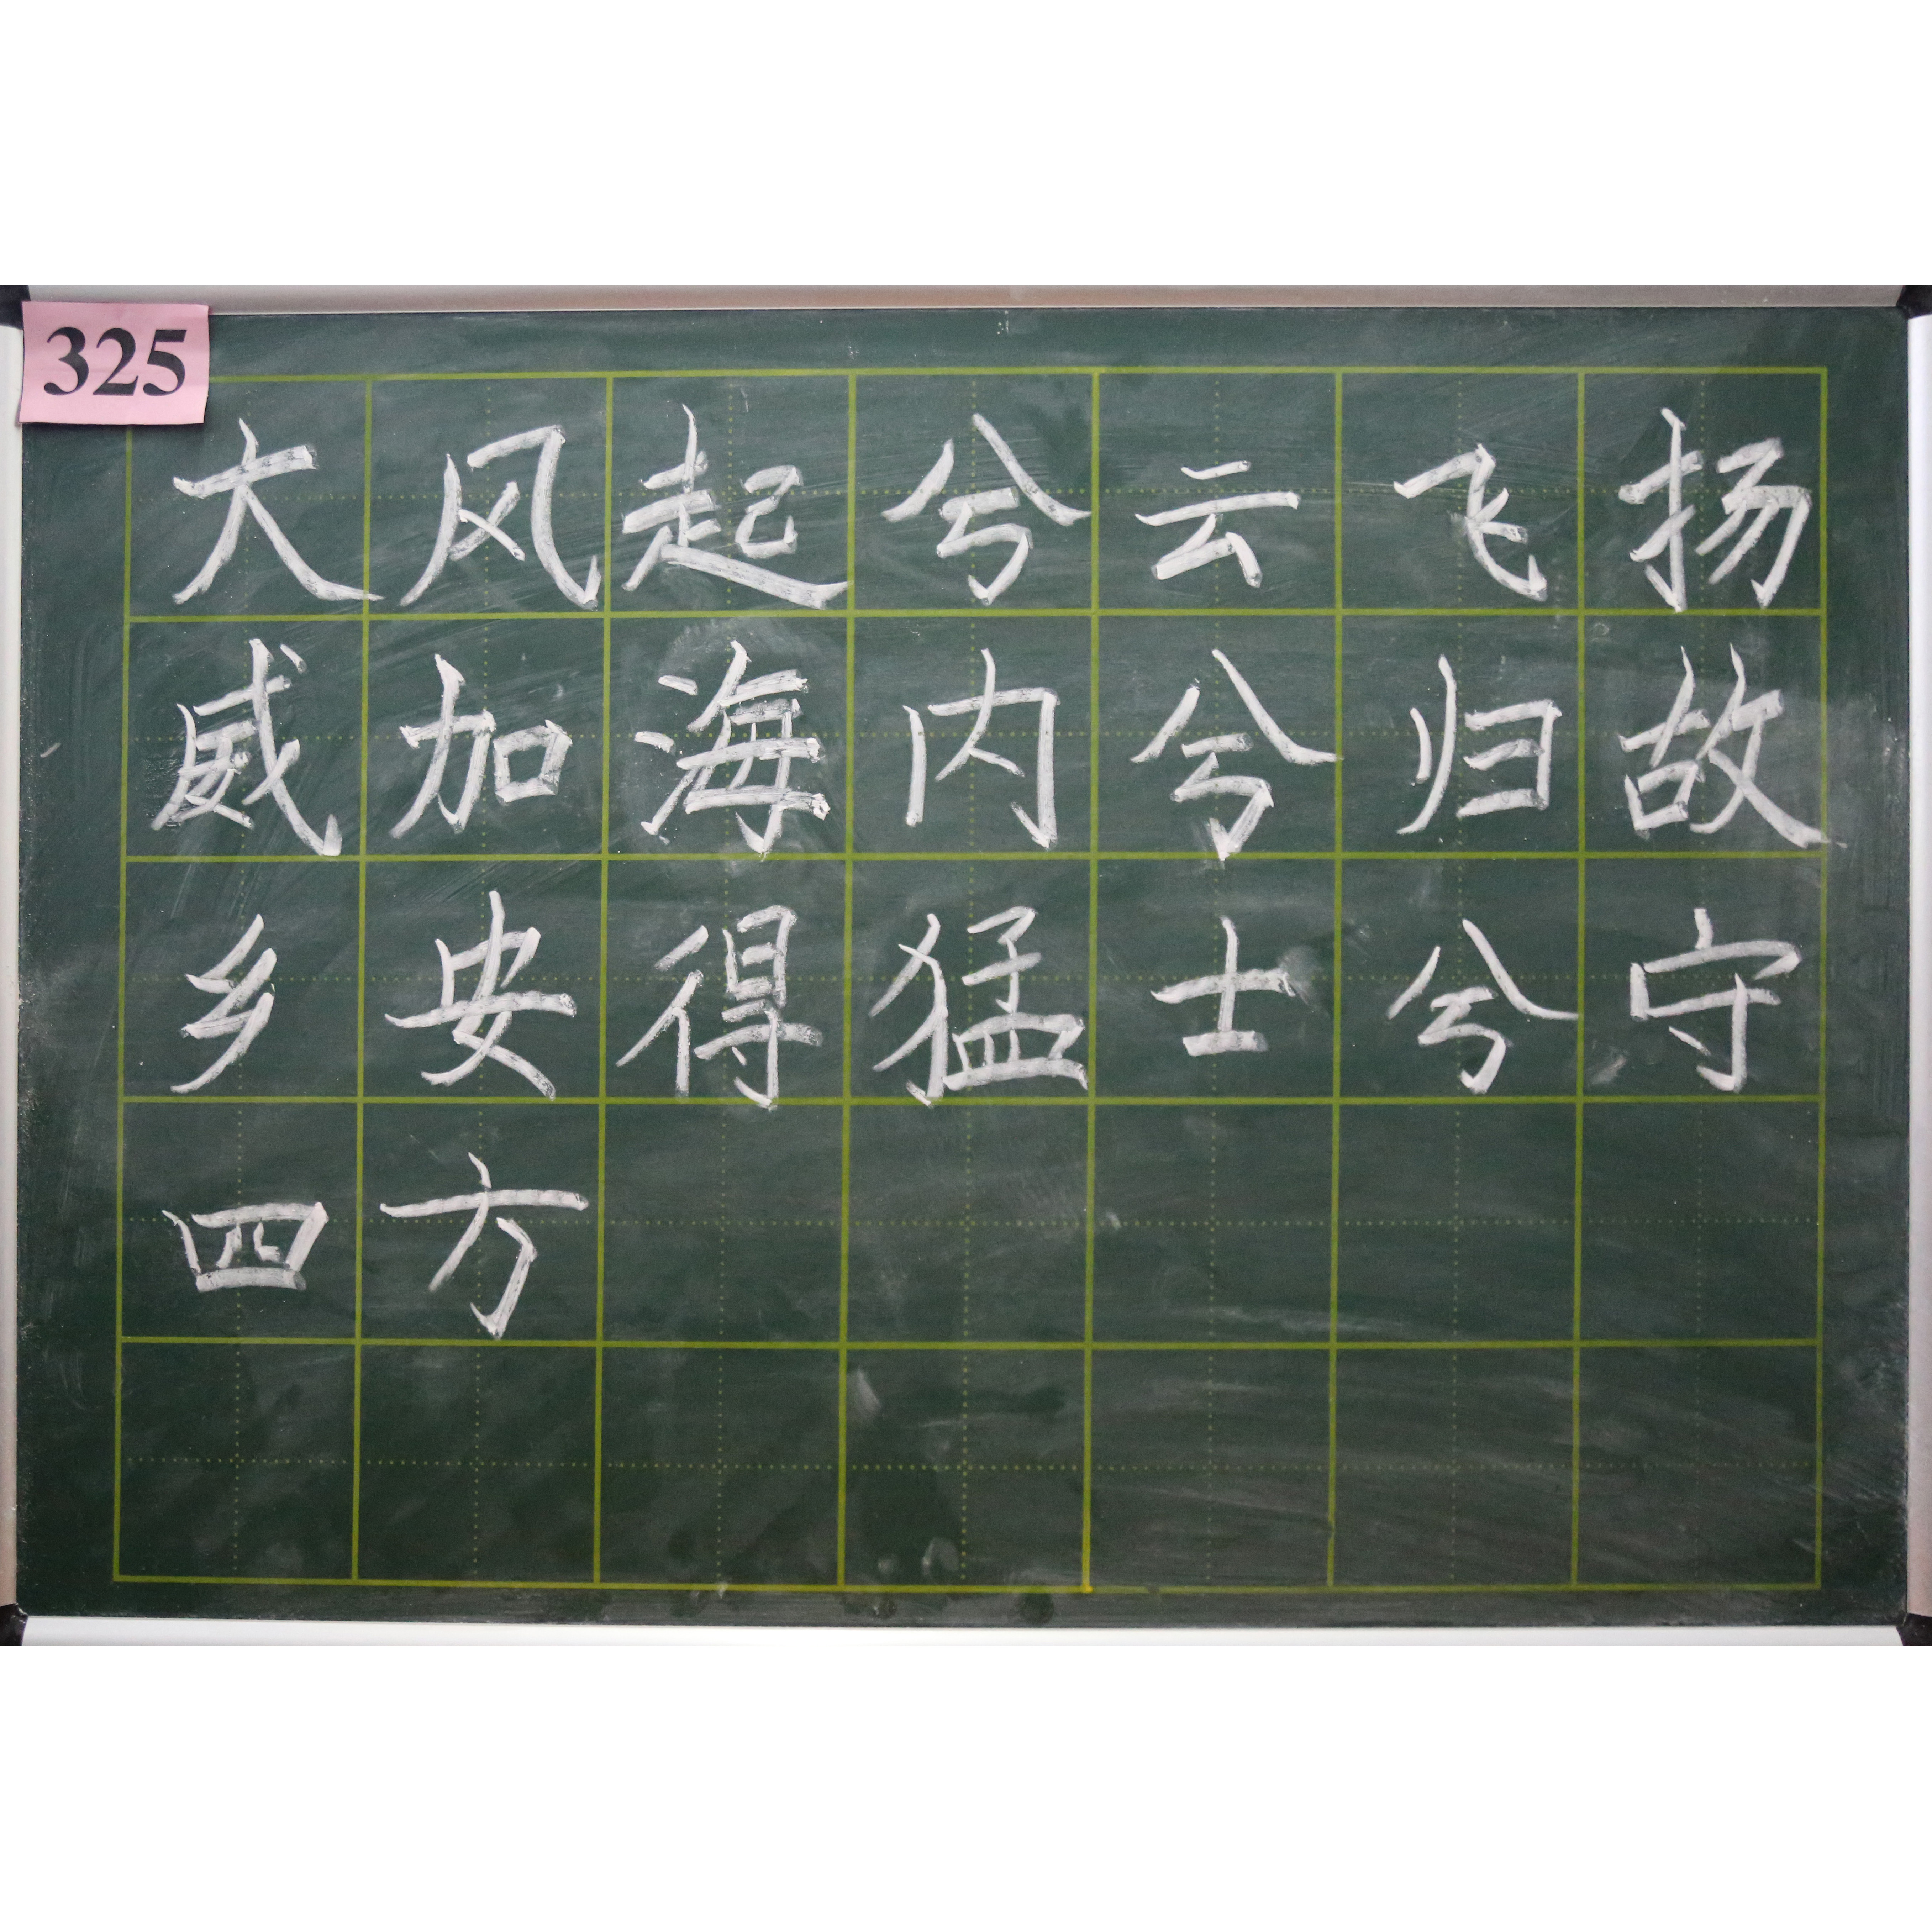 325
大风起兮云飞扬
威加海内兮归故
乡安得猛士兮守
四方